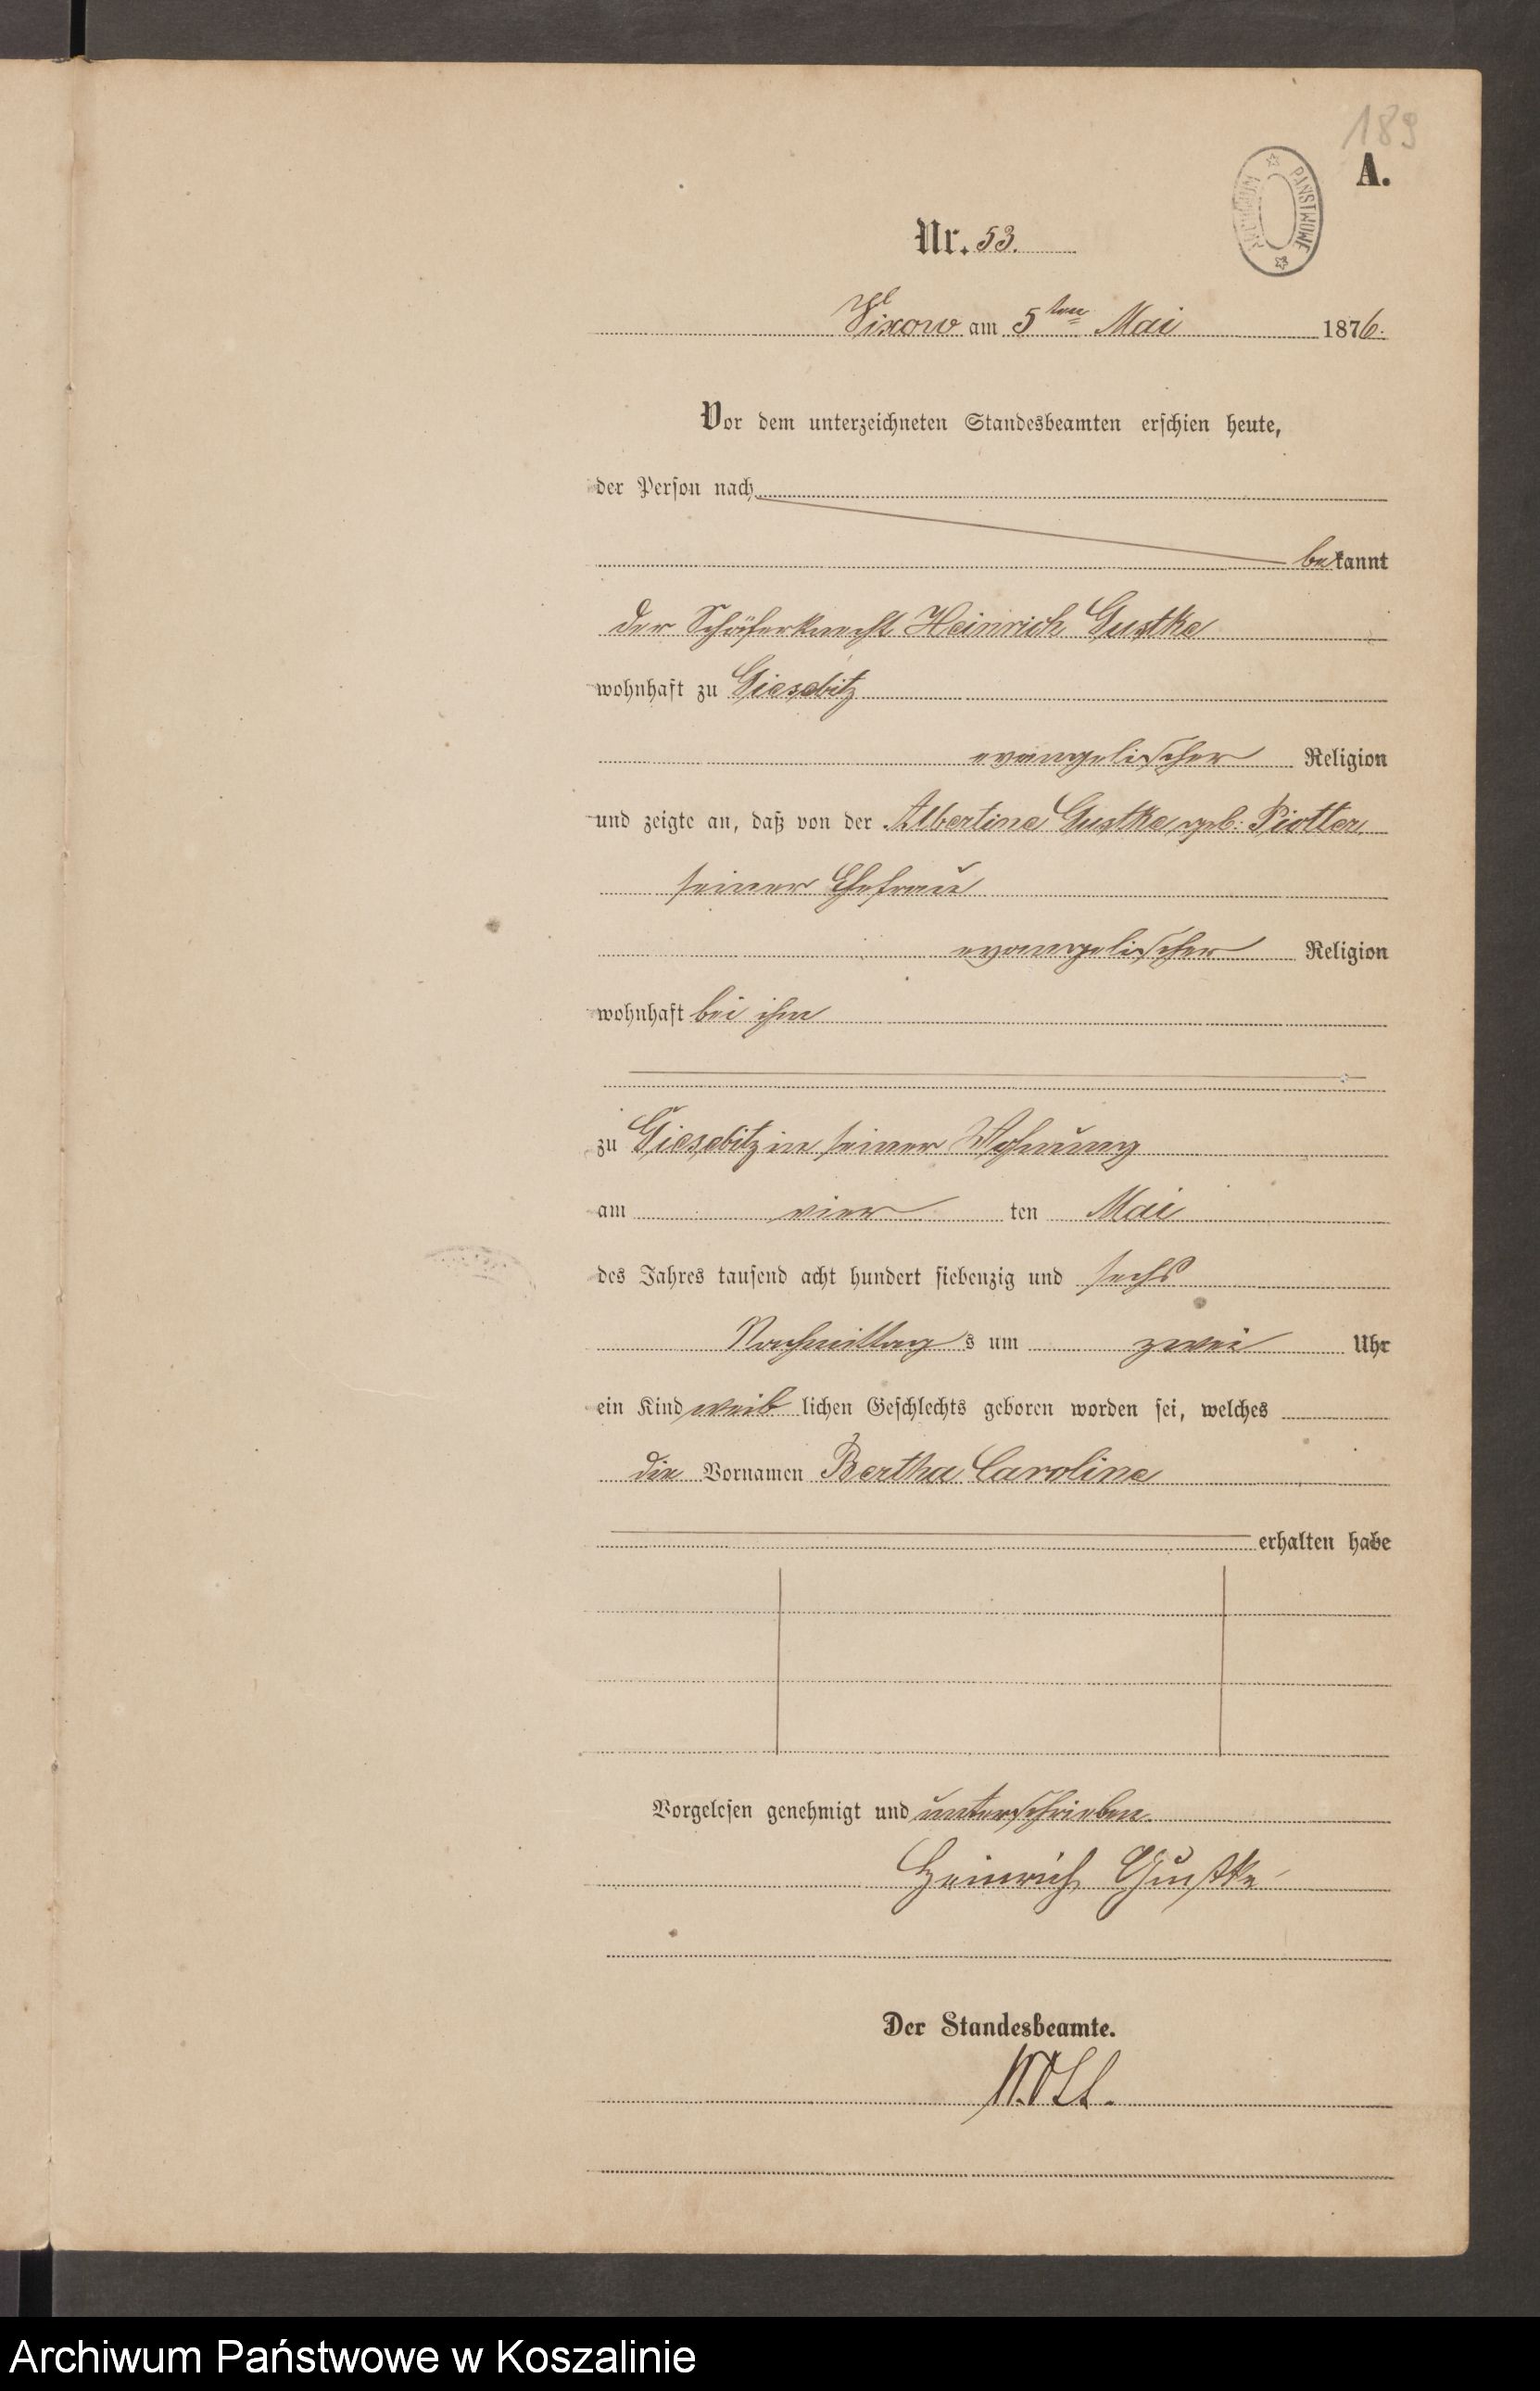 189
A.
ARCHIWUM PAŃSTWOWE
Nr. 53.
Vixow am 5ten Mai 1876.
Vor dem unterzeichneten Standesbeamten erschien heute,
der Person nach
bekannt
der Schäferknecht Heinrich Gustke
wohnhaft zu Giesebitz
evangelischer Religion
und zeigte an, daß von der Albertine Gustke geb. Piotter
seiner Ehefrau
evangelischer Religion
wohnhaft bei ihm
zu Giesebitz in seiner Wohnung
am vier ten Mai
des Jahres tausend acht hundert siebenzig und sechs
Nachmittag s um zwei Uhr
ein Kind weib lichen Geschlechts geboren worden sei, welches
die Vornamen Bertha Caroline
erhalten habe
Vorgelesen genehmigt und unterschrieben.
Heinrich Gustke
Der Standesbeamte.
Archiwum Państwowe w Koszalinie